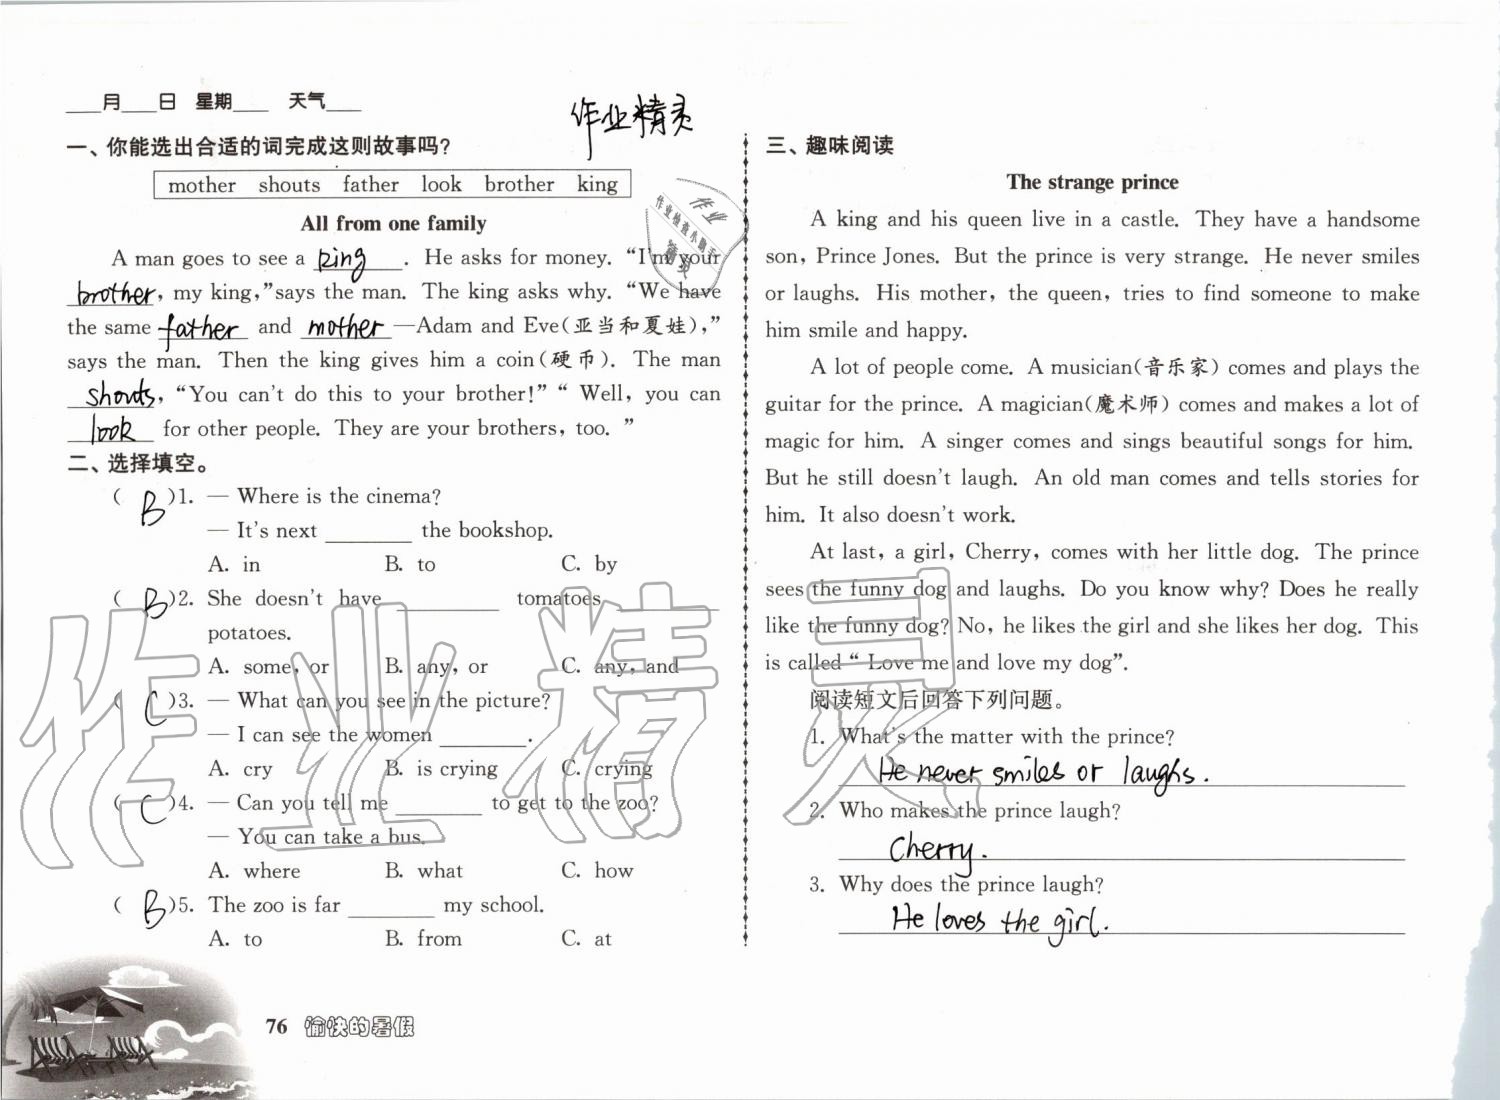 ___月___日 星期___ 天气___
作业精灵
一、你能选出合适的词完成这则故事吗?
mother shouts father look brother king
All from one family
A man goes to see a king. He asks for money. “I'm your
brother, my king,”says the man. The king asks why. “We have
the same father and mother—Adam and Eve(亚当和夏娃),”
says the man. Then the king gives him a coin(硬币). The man
shouts, “You can't do this to your brother!” “ Well, you can
look for other people. They are your brothers, too. ”
二、选择填空。
( B )1. — Where is the cinema?
— It's next ________ the bookshop.
A. in B. to C. by
( B )2. She doesn't have ________ tomatoes ________
potatoes.
A. some, or B. any, or C. any, and
( C )3. — What can you see in the picture?
— I can see the women ________.
A. cry B. is crying C. crying
( C )4. — Can you tell me ________ to get to the zoo?
— You can take a bus.
A. where B. what C. how
( B )5. The zoo is far ________ my school.
A. to B. from C. at
76 愉快的暑假
三、趣味阅读
The strange prince
A king and his queen live in a castle. They have a handsome
son, Prince Jones. But the prince is very strange. He never smiles
or laughs. His mother, the queen, tries to find someone to make
him smile and happy.
A lot of people come. A musician(音乐家) comes and plays the
guitar for the prince. A magician(魔术师) comes and makes a lot of
magic for him. A singer comes and sings beautiful songs for him.
But he still doesn't laugh. An old man comes and tells stories for
him. It also doesn't work.
At last, a girl, Cherry, comes with her little dog. The prince
sees the funny dog and laughs. Do you know why? Does he really
like the funny dog? No, he likes the girl and she likes her dog. This
is called“ Love me and love my dog”.
阅读短文后回答下列问题。
1. What's the matter with the prince?
He never smiles or laughs.
2. Who makes the prince laugh?
Cherry.
3. Why does the prince laugh?
He loves the girl.
作业
作业检查小助手
精灵
作业精灵